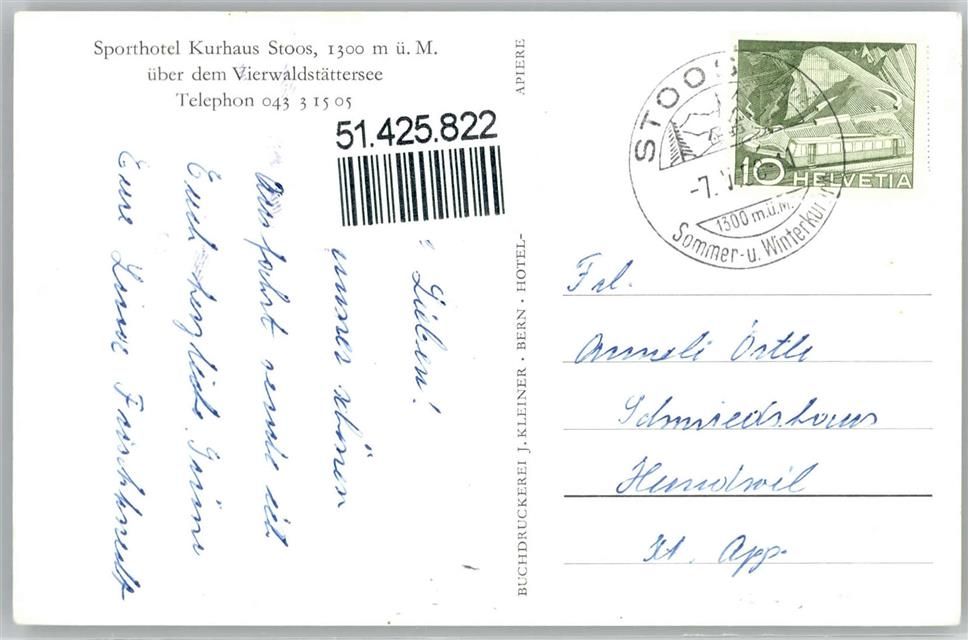 Sporthotel Kurhaus Stoos, 1300 m ü. M.
über dem Vierwaldstättersee
Telephon 043 3 15 05
51.425.822
Lieben!
unserer schönen
Ausfahrt sende ich
Euch herzliche Grüsse
Eure
APIERE
BUCHDRUCKEREI J. KLEINER · BERN · HOTEL-
STOOS
-7.
1300 m.ü.M.
Sommer- u. Winterkur
10 HELVETIA
Frl.
Anneli Örtle
Schmiedshaus
Hundwil
Kt. App.